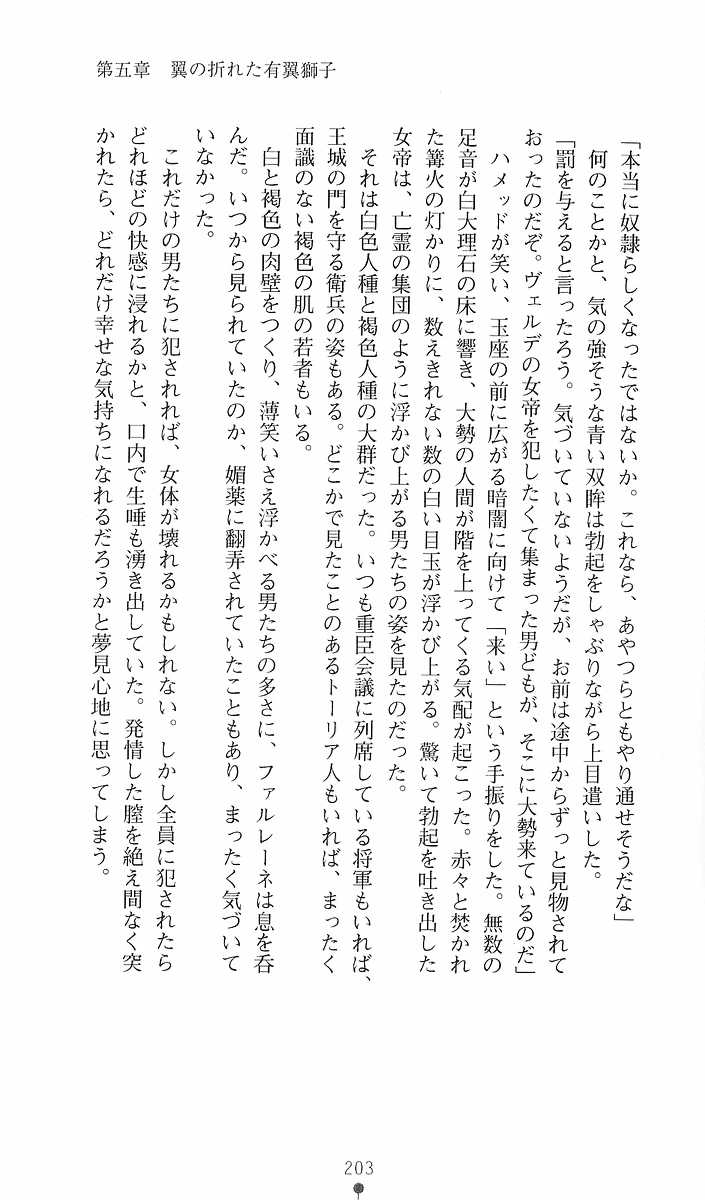 第五章　翼の折れた有翼獅子
「本当に奴隷らしくなったではないか。これなら、あやつらともやり通せそうだな」
　何のことかと、気の強そうな青い双眸は勃起をしゃぶりながら上目遣いした。
「罰を与えると言ったろう。気づいていないようだが、お前は途中からずっと見物されて
おったのだぞ。ヴェルデの女帝を犯したくて集まった男どもが、そこに大勢来ているのだ」
　ハメッドが笑い、玉座の前に広がる暗闇に向けて「来い」という手振りをした。無数の
足音が白大理石の床に響き、大勢の人間が階を上ってくる気配が起こった。赤々と焚かれ
た篝火の灯かりに、数えきれない数の白い目玉が浮かび上がる。驚いて勃起を吐き出した
女帝は、亡霊の集団のように浮かび上がる男たちの姿を見たのだった。
　それは白色人種と褐色人種の大群だった。いつも重臣会議に列席している将軍もいれば、
王城の門を守る衛兵の姿もある。どこかで見たことのあるトーリア人もいれば、まったく
面識のない褐色の肌の若者もいる。
　白と褐色の肉壁をつくり、薄笑いさえ浮かべる男たちの多さに、ファルレーネは息を呑
んだ。いつから見られていたのか、媚薬に翻弄されていたこともあり、まったく気づいて
いなかった。
　これだけの男たちに犯されれば、女体が壊れるかもしれない。しかし全員に犯されたら
どれほどの快感に浸れるかと、口内で生唾も湧き出していた。発情した膣を絶え間なく突
かれたら、どれだけ幸せな気持ちになれるだろうかと夢見心地に思ってしまう。
203